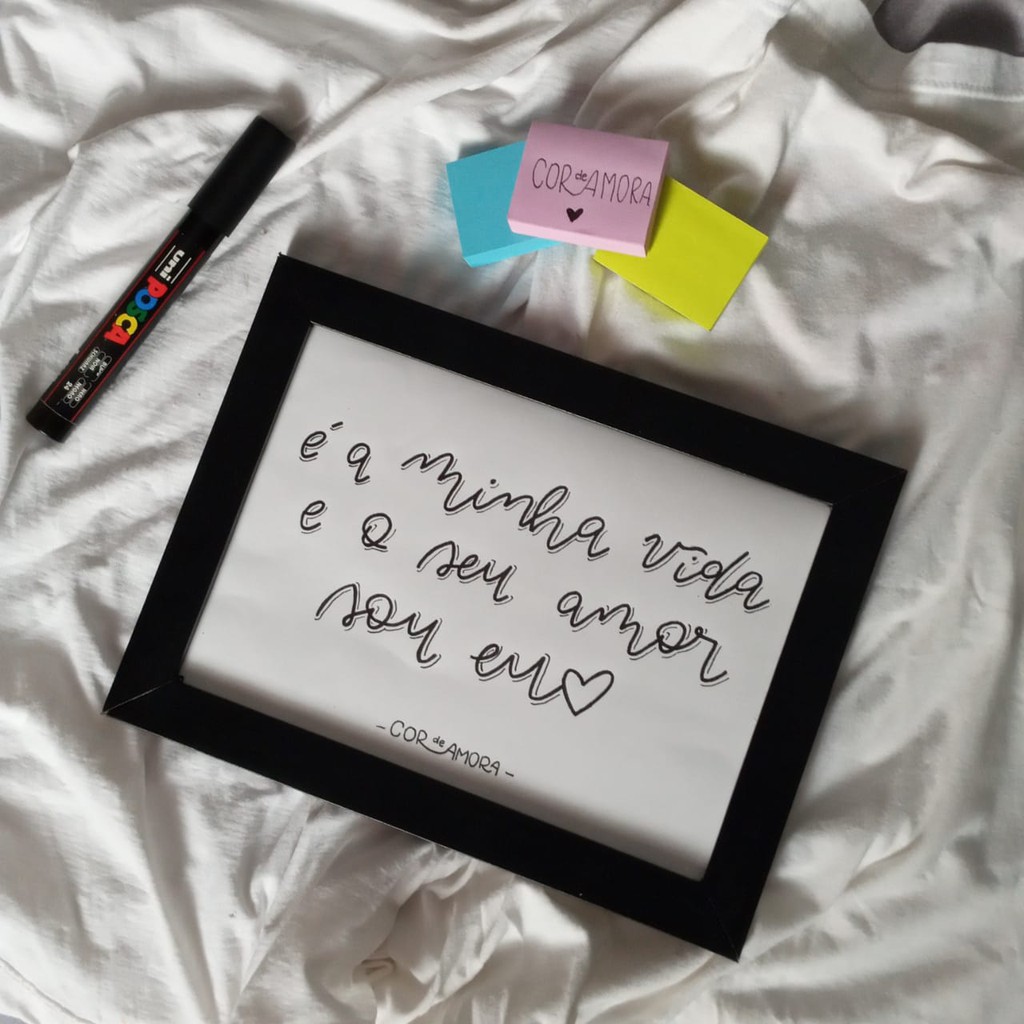 COR de AMORA
uni POSCA
é a minha vida
e o seu amor
sou eu
- COR de AMORA -